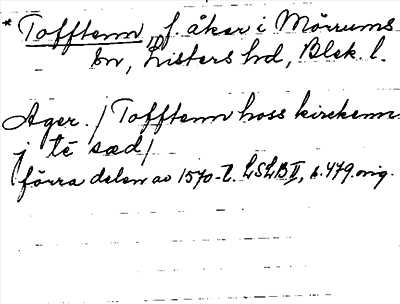 * Tofftenn, f. åker i Mörrums
sn, Listers hd, Blek. l.
Ager. / Tofftenn hoss kirckenn
j tē sæd /
förra delen av 1570-t. LSLB II, s. 479. orig.